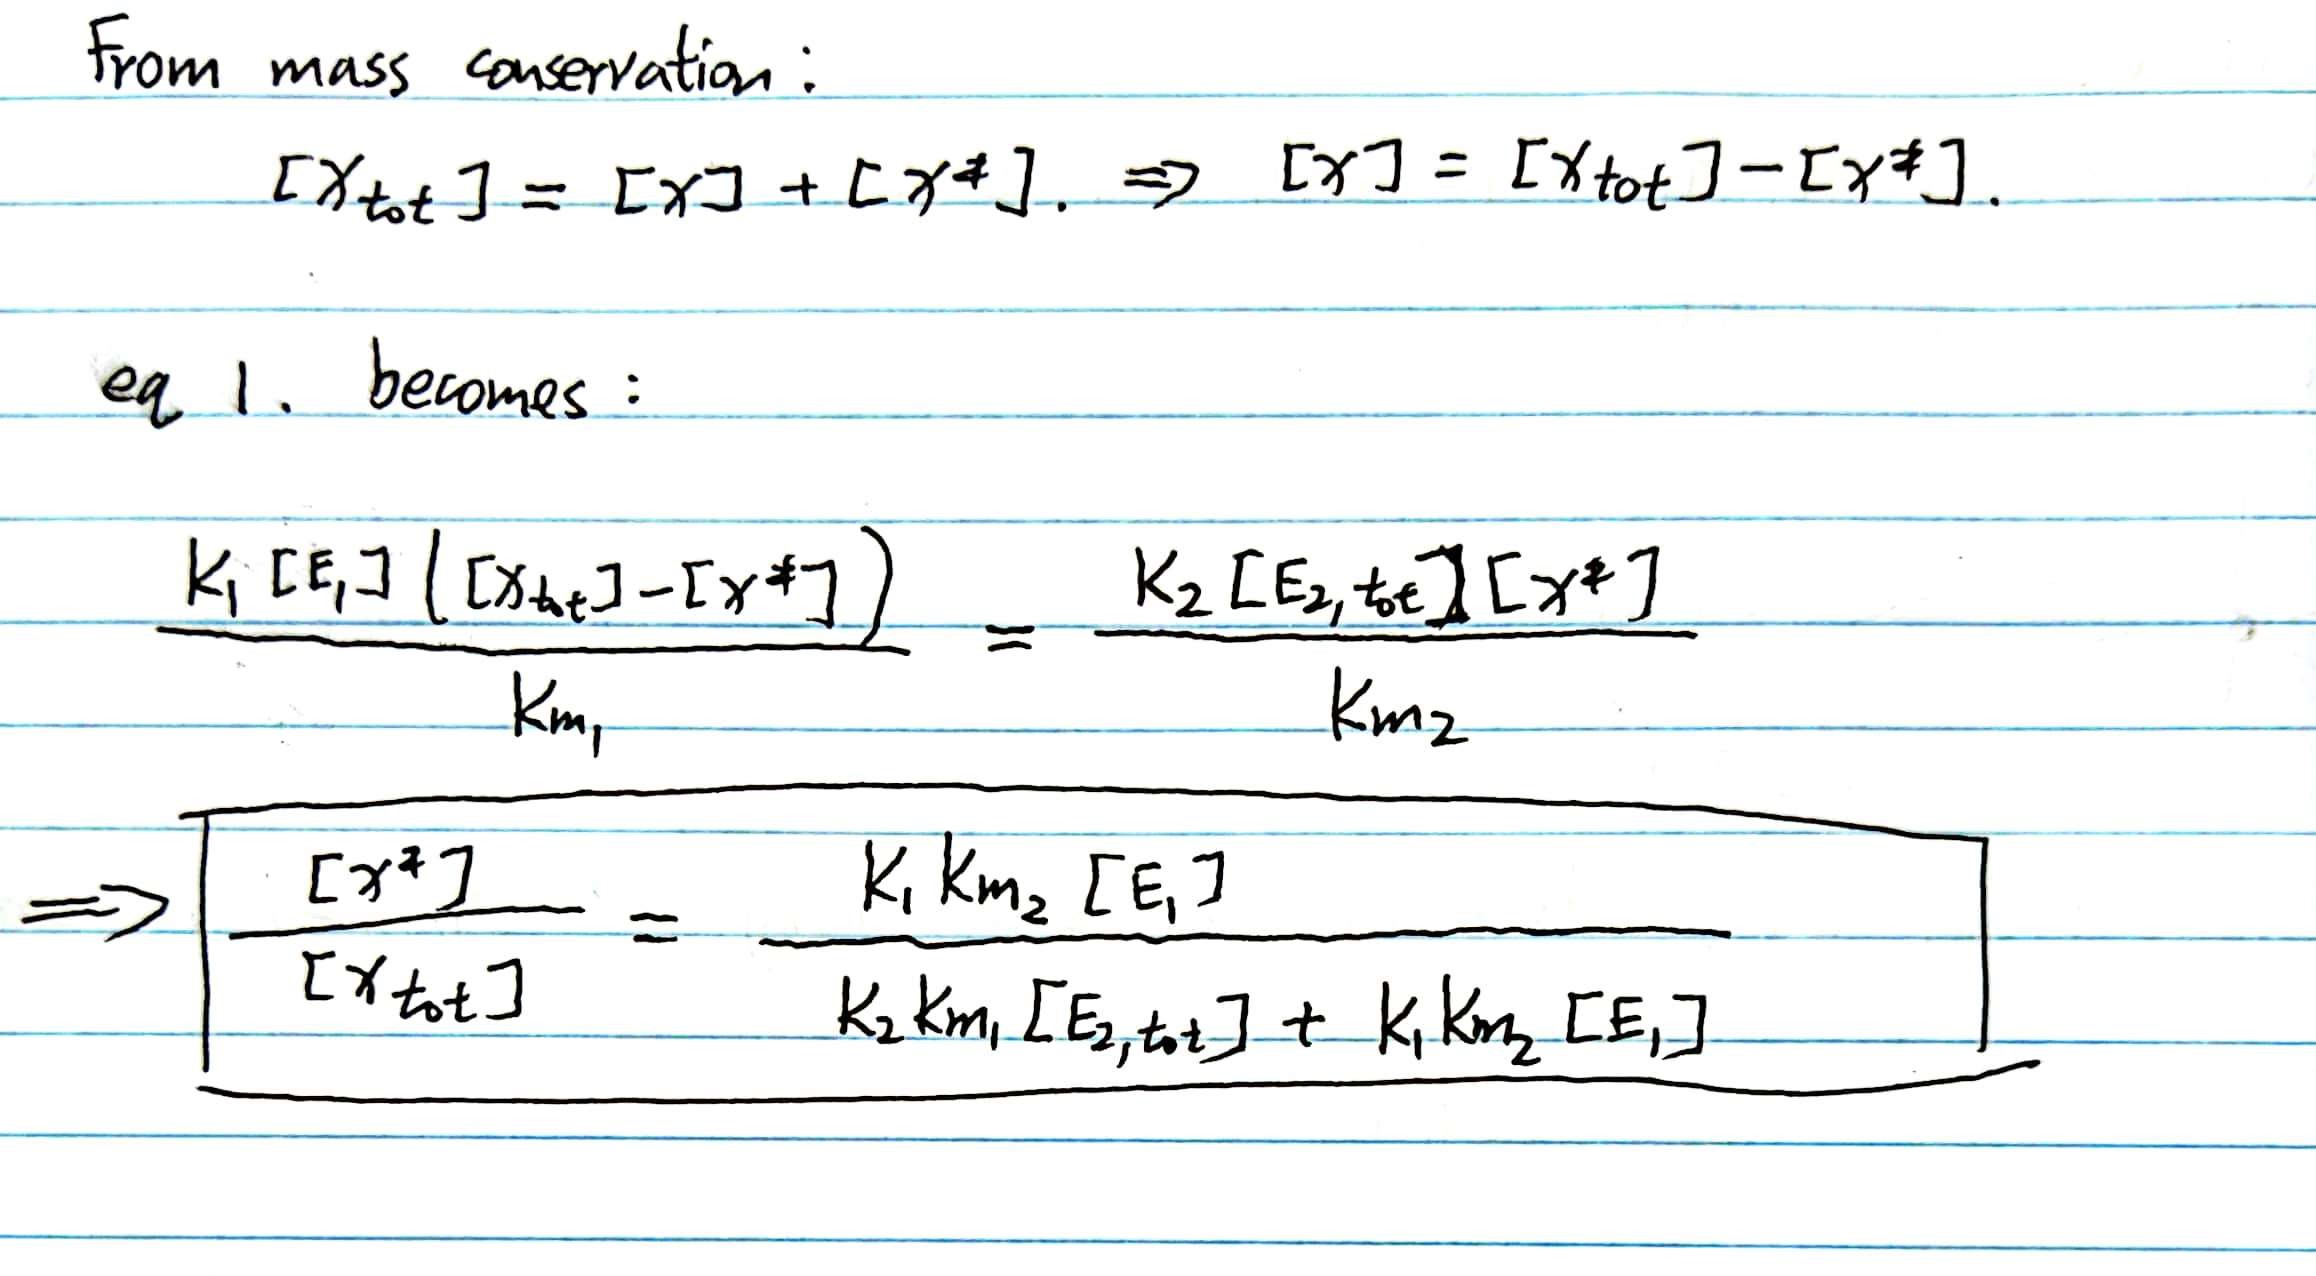 From mass conservation:
[X_tot] = [X] + [X*]. ⇒ [X] = [X_tot] - [X*].
eq 1. becomes:
K₁[E₁]([X_tot]-[X*]) / Km₁ = K₂[E₂,tot][X*] / Km₂
⇒ [X*] / [X_tot] = K₁Km₂[E₁] / (K₂Km₁[E₂,tot] + K₁Km₂[E₁])